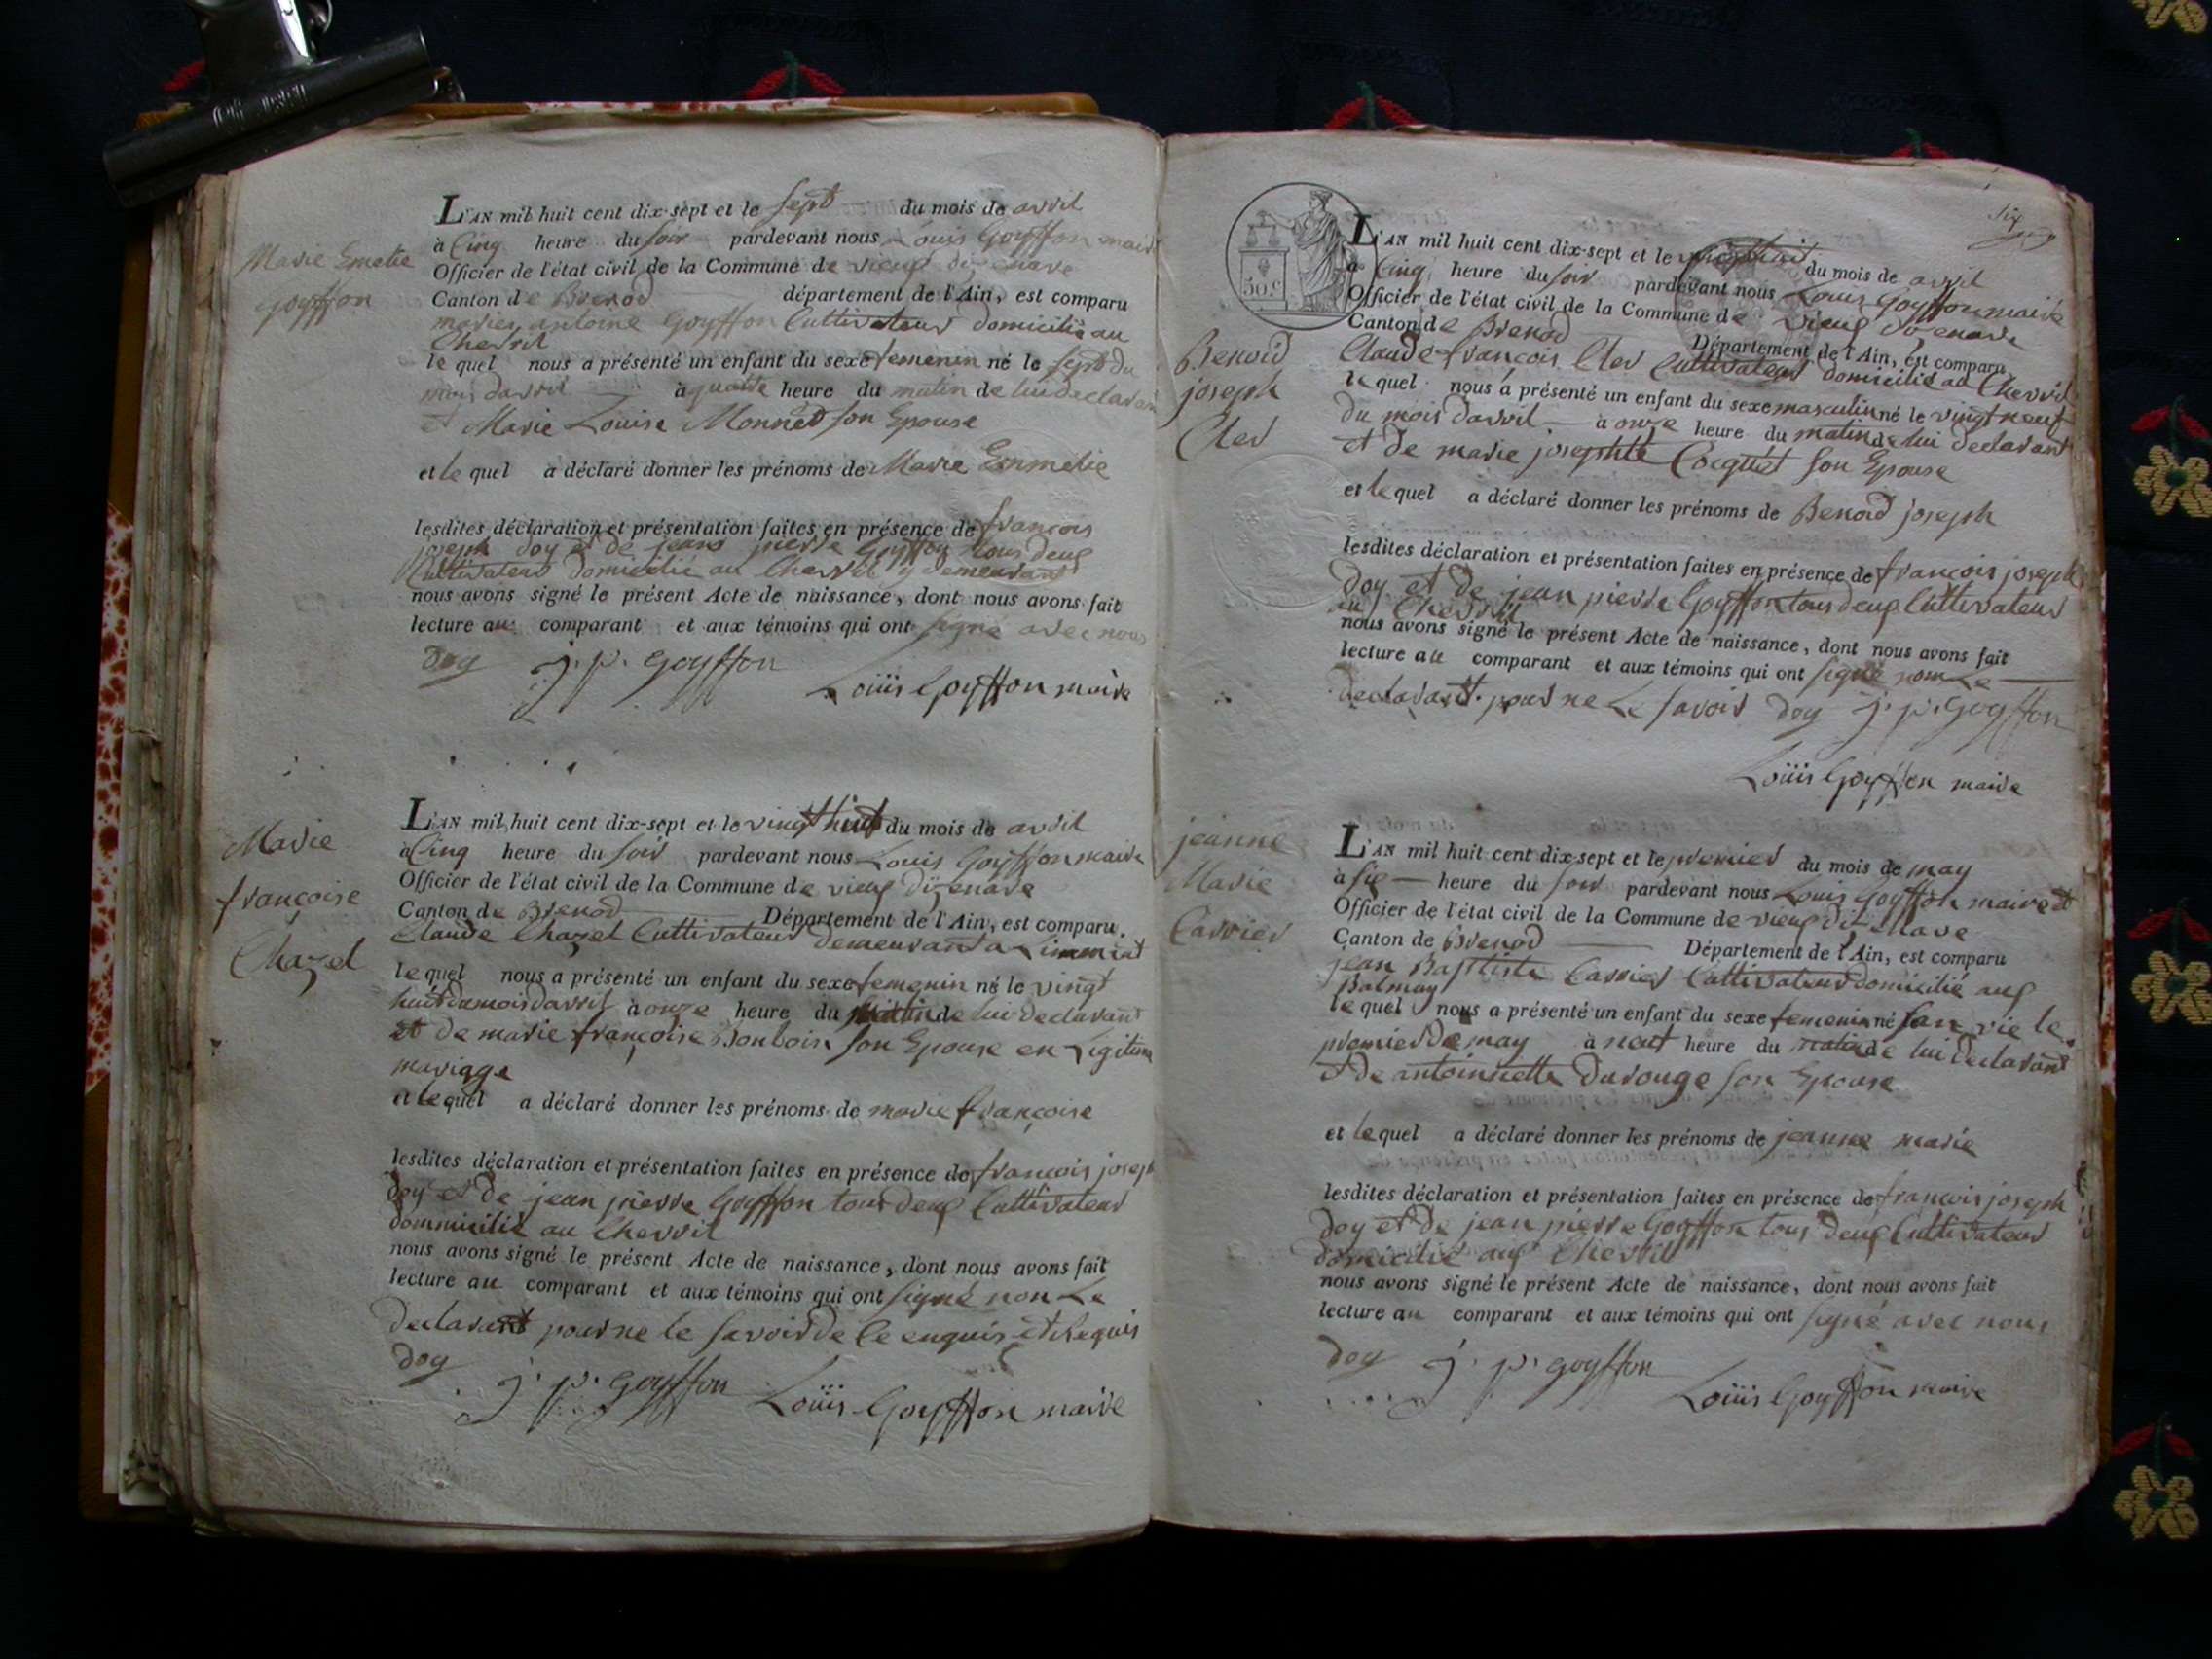 Marie Emelie
goyffon
L'AN mil huit cent dix-sept et le sept du mois de avril
à Cinq heure du soir pardevant nous Louis Goyffon maire
Officier de l'état civil de la Commune de vieux dizenave
Canton de Brenod département de l'Ain, est comparu
marier antoine Goyffon Cultivateur domicilié au
Chevril
le quel nous a présenté un enfant du sexe femenin né le sept du
mois davril à quatre heure du matin de lui declarant
et Marie Louise Monnet son Epouse
et le quel a déclaré donner les prénoms de Marie Emmelie
lesdites déclaration et présentation faites en présence de francois
joseph doy et de jean pierre Goyffon tous deux
Cultivateur domicilié au Chevril y demeurant
nous avons signé le présent Acte de naissance, dont nous avons fait
lecture au comparant et aux témoins qui ont signé avec nous
doy j. p. goyffon
Louis Goyffon maire
Marie
françoise
Chazel
L'AN mil huit cent dix-sept et le vingt huit du mois de avril
à Cinq heure du soir pardevant nous Louis Goyffon maire
Officier de l'état civil de la Commune de vieux dizenave
Canton de Brenod Département de l'Ain, est comparu.
Claude Chazel Cultivateur demeurant a
le quel nous a présenté un enfant du sexe femenin né le vingt
huit du mois davril à onze heure du matin de lui declarant
et de marie françoise Bonbois son Epouse en Legitime
mariage
et le quel a déclaré donner les prénoms de marie françoise
lesdites déclaration et présentation faites en présence de francois joseph
doy et de jean pierre Goyffon tous deux Cultivateur
dommicilié au Chevril
nous avons signé le présent Acte de naissance, dont nous avons fait
lecture au comparant et aux témoins qui ont signé non Le
declarant pour ne le savoir de ce enquis et Requis
doy
j. p. goyffon Louis Goyffon maire
six
50 c
Benoid
joseph
Cler
L'AN mil huit cent dix-sept et le vingt huit du mois de avril
à Cinq heure du soir pardevant nous Louis Goyffon maire
Officier de l'état civil de la Commune de vieux dizenave
Canton de Brenod Département de l'Ain, est comparu
Claude françois Cler Cultivateur domicilié au Chevril
le quel nous a présenté un enfant du sexe masculin né le vingt neuf
du mois davril à onze heure du matin de lui declarant
et de marie josephte Cocquet son Epouse
et le quel a déclaré donner les prénoms de Benoid joseph
lesdites déclaration et présentation faites en présence de francois joseph
doy et de jean pierre Goyffon tous deux Cultivateur
au Chevril
nous avons signé le présent Acte de naissance, dont nous avons fait
lecture au comparant et aux témoins qui ont signé nom Le
declarant pour ne Le savoir doy j. p. goyffon
Louis Goyffon maire
jeanne
Marie
Carrier
L'AN mil huit cent dix-sept et le premier du mois de may
à six heure du soir pardevant nous Louis Goyffon maire et
Officier de l'état civil de la Commune de vieux dizenave
Canton de Brenod Département de l'Ain, est comparu
jean Baptiste Carrier Cultivateur domicilié aux
Balmay
le quel nous a présenté un enfant du sexe femenin né san vie le
premier de may à neuf heure du matin de lui declarant
et de antoinette Durouge son Epouse
et le quel a déclaré donner les prénoms de jeanne marie
lesdites déclaration et présentation faites en présence de francois joseph
doy et de jean pierre Goyffon tous deux Cultivateur
domicilié aux Chevril
nous avons signé le présent Acte de naissance, dont nous avons fait
lecture au comparant et aux témoins qui ont signé avec nous
doy j. p. goyffon
Louis Goyffon maire